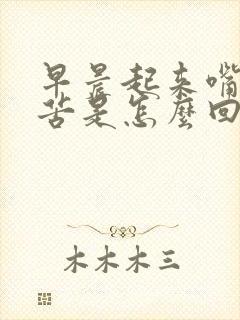 早晨起来嘴
苦是怎麼回
木木木三